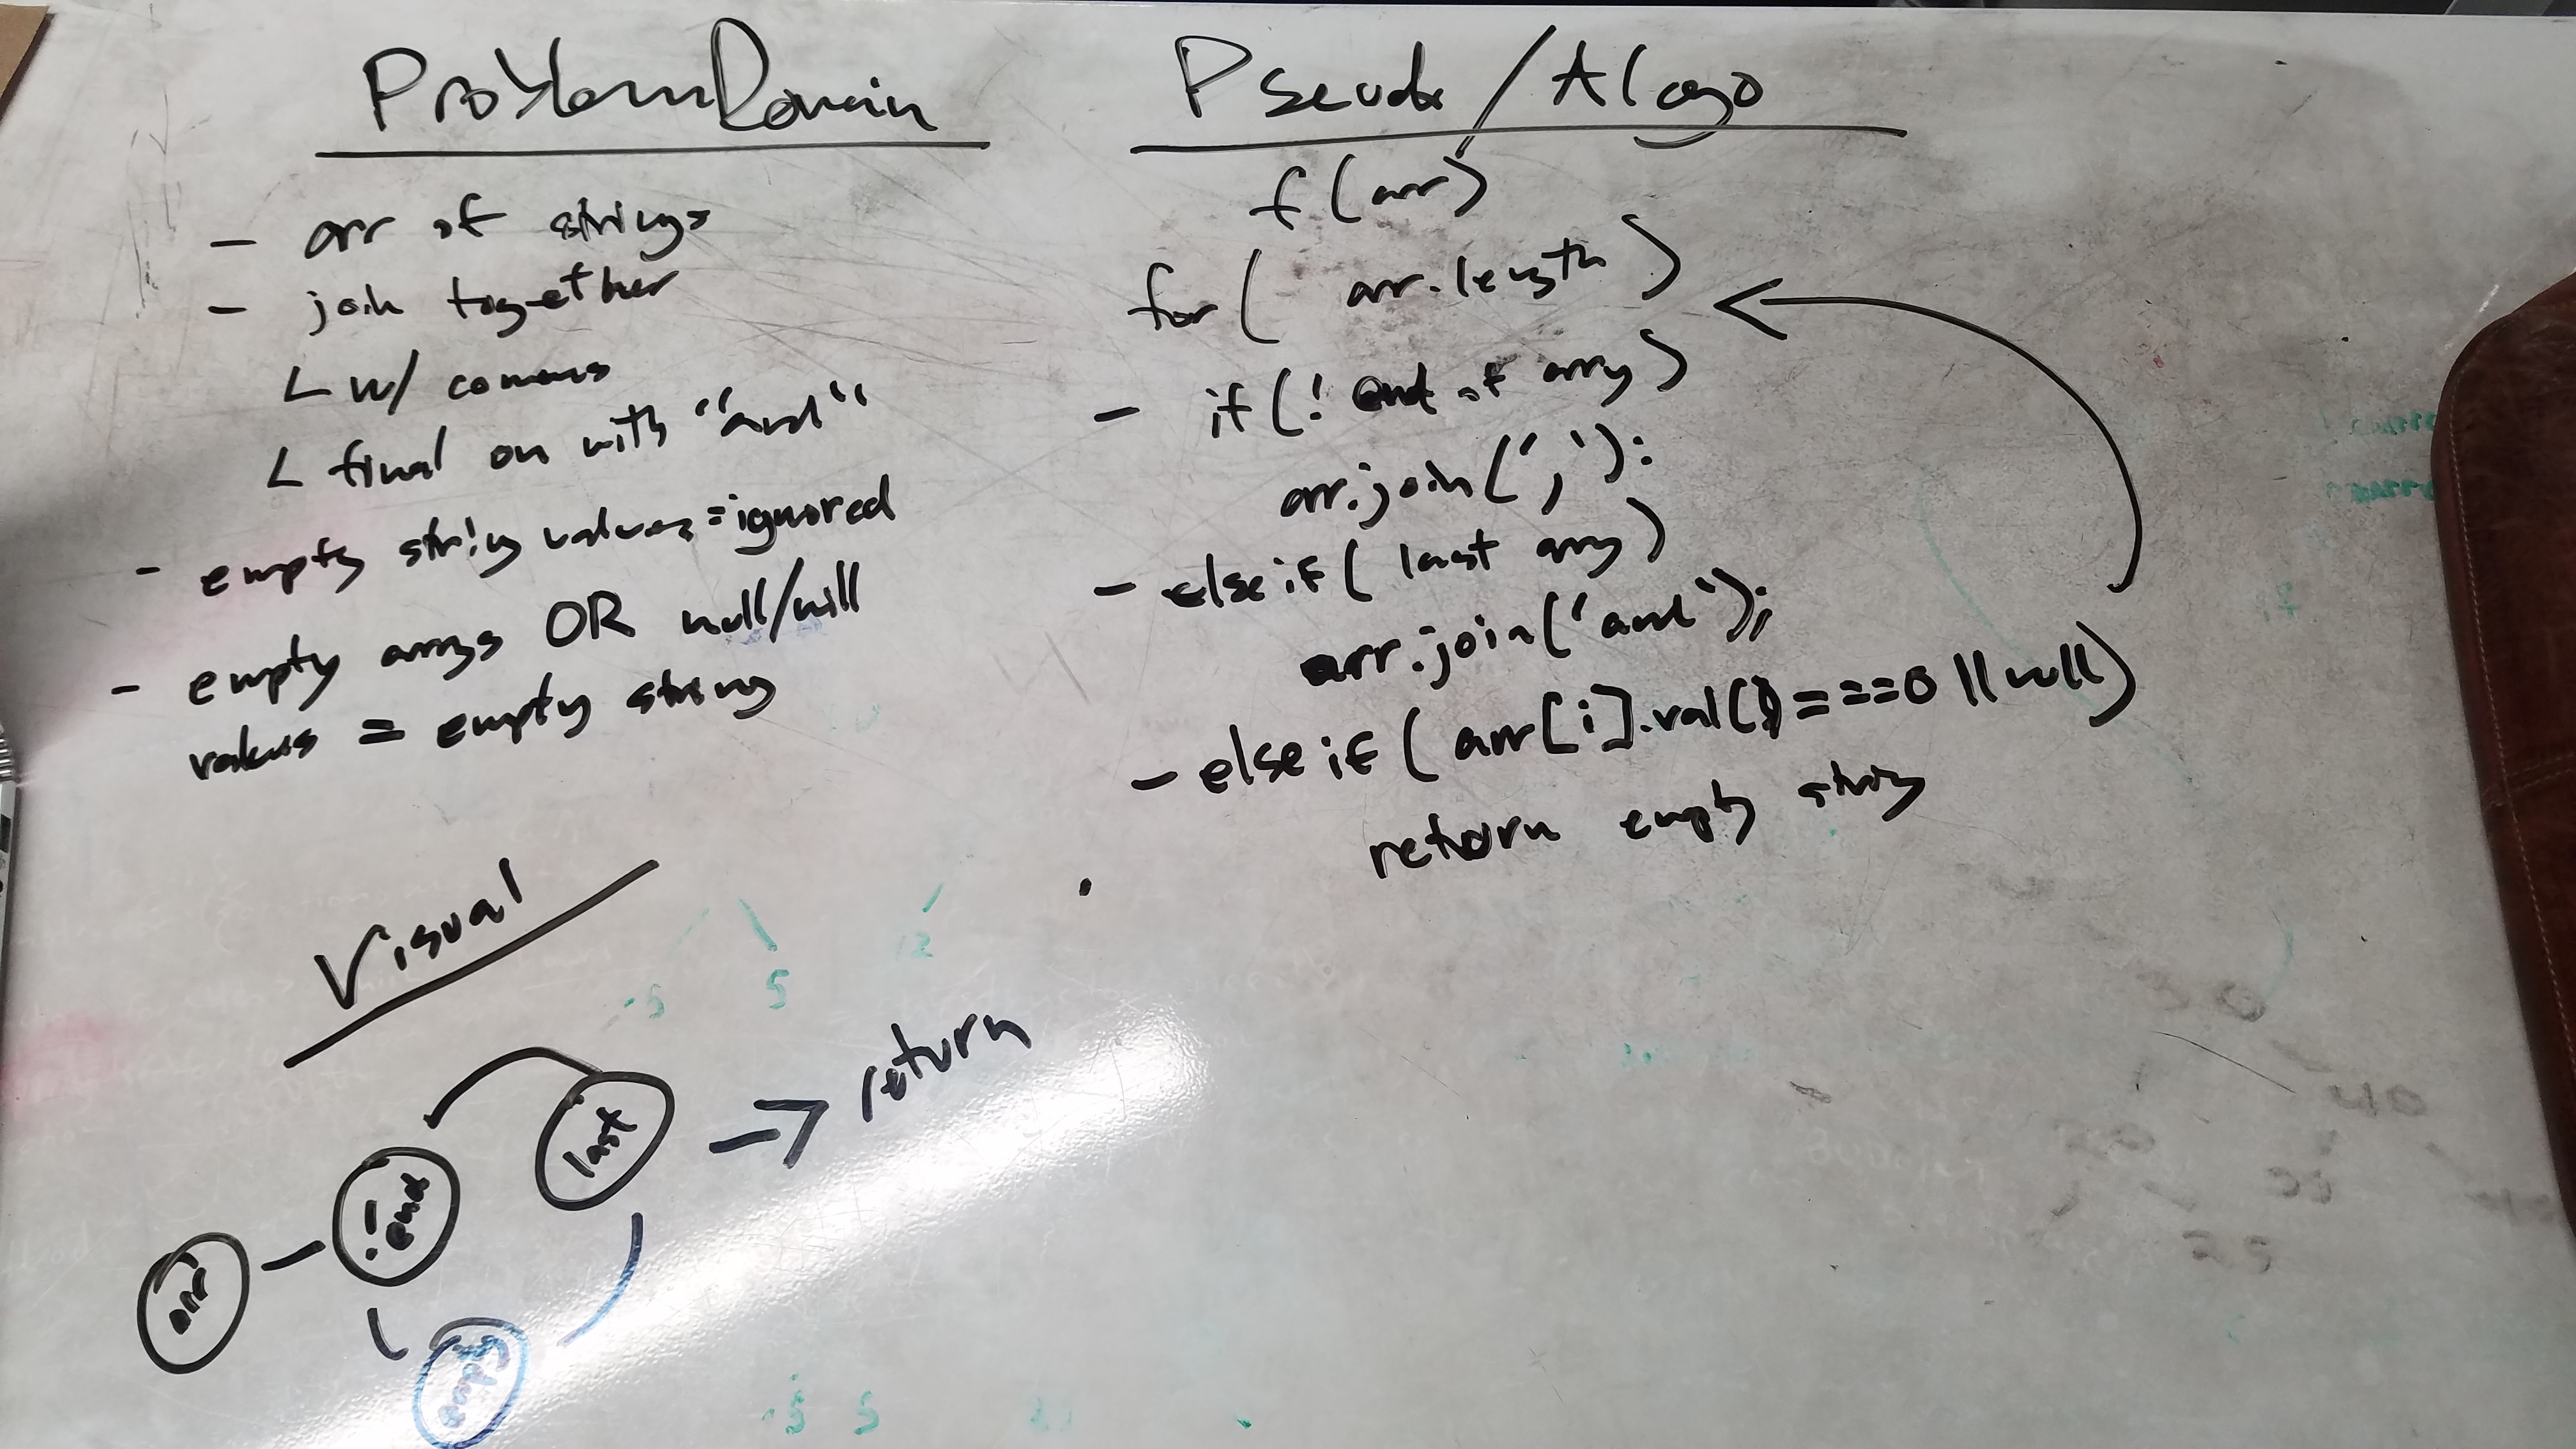 Problem Domain
- arr of strings
- join together
L w/ commas
L final on with "and"
- empty string values = ignored
- empty arrys OR null/nill
values = empty string
Visual
arr
!end
last
return
Pseudo/Algo
f(arr)
for( arr.length)
- if(! end of arry)
arr.join(',');
- else if( last arry)
arr.join('and');
- else if( arr[i].val() === 0 || null)
return empty string